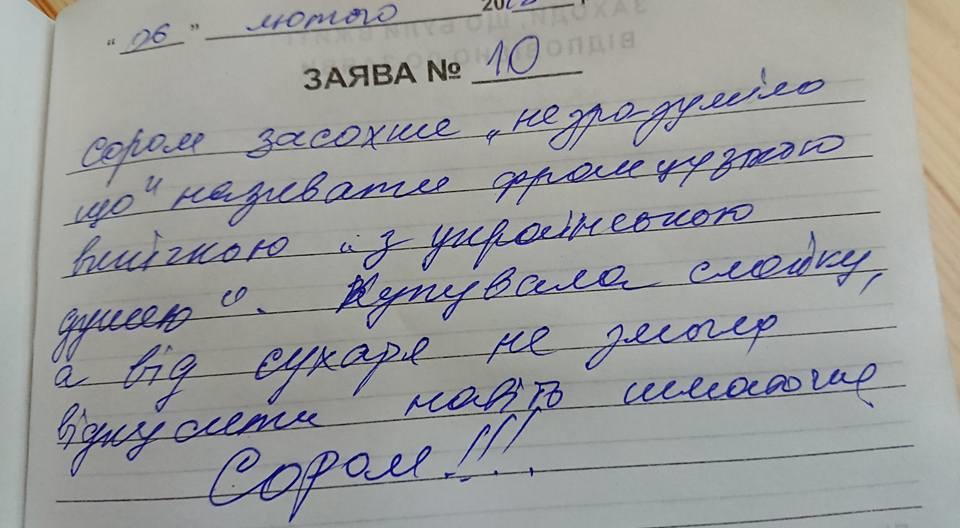 "06" лютого 20
ЗАЯВА № 10
Сором засохше „незрозуміло
що" називати французкою
випічкою "з українською
душею". Купувала слойку,
а від сухаря не змогла
відкусити навіть шматочка
Сором!!!